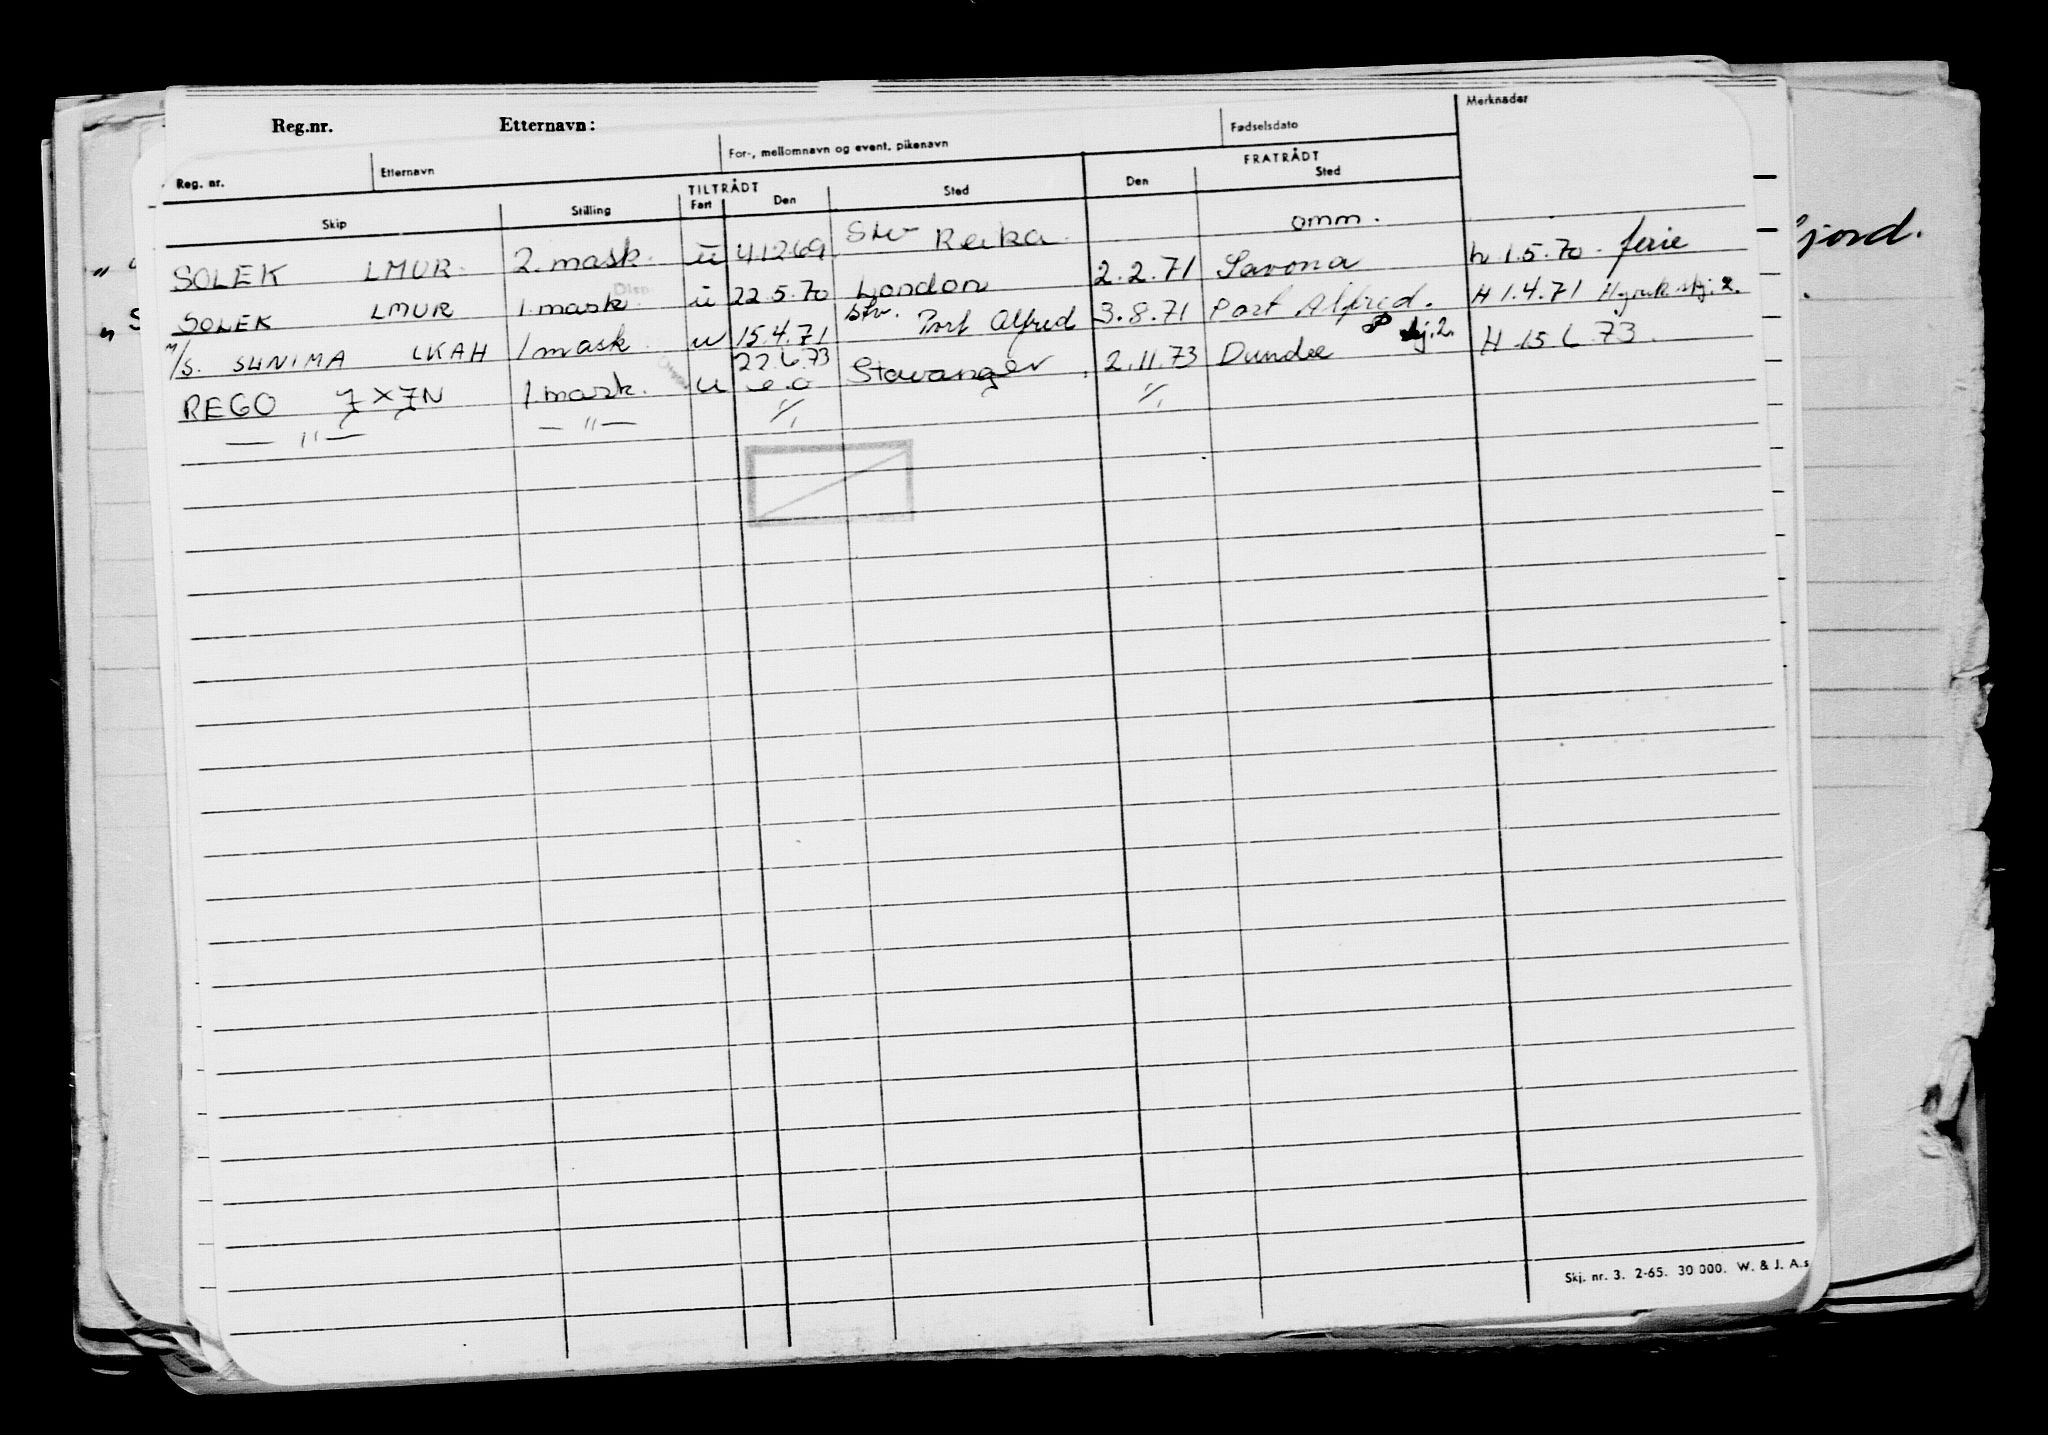 Reg.nr. Etternavn: Merknader
Reg. nr. Etternavn For-, mellomnavn og event. pikenavn Fødselsdato
TILTRÅDT FRATRÅDT
Skip Stilling Fart Den Sted Den Sted
SOLEK LMUR. 2. mask. u 4.12.69 Stv omm.
SOLEK LMUR 1. mask. u 22.5.70 London 2.2.71 Savona h 1.5.70 - ferie
M/S. SUNIMA LKAH 1 mask u 15.4.71 Stv. Port Alfred 3.8.71 Port Alfred. H 1.4.71 skj. 2.
REGO JXJN 1. mask. u 22.6.73 Stavanger 2.11.73 Dundee skj. 2. H 15 6 73.
— " — — " — 
jord.
Skj. nr. 3. 2-65. 30 000. W. & J. A.s